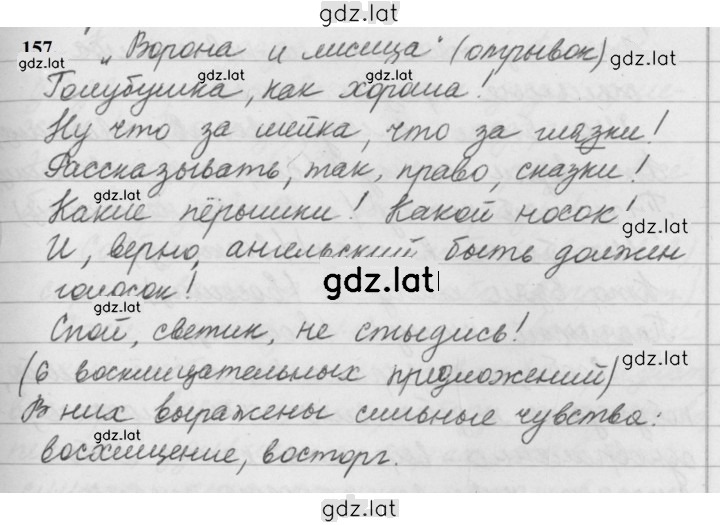 gdz.lat
157 „Ворона и лисица" (отрывок) gdz.lat
gdz.lat gdz.lat gdz.lat
Голубушка, как хороша!
Ну что за шейка, что за глазки!
Рассказывать, так, право, сказки!
gdz.lat gdz.lat
Какие пёрышки! Какой носок!
И, верно, ангельский быть должен
gdz.lat
голосок!
gdz.lat
Спой, светик, не стыдись!
gdz.lat
(6 восклицательных предложений)
В них выражены сильные чувства:
gdz.lat
восхищение, восторг.
gdz.lat